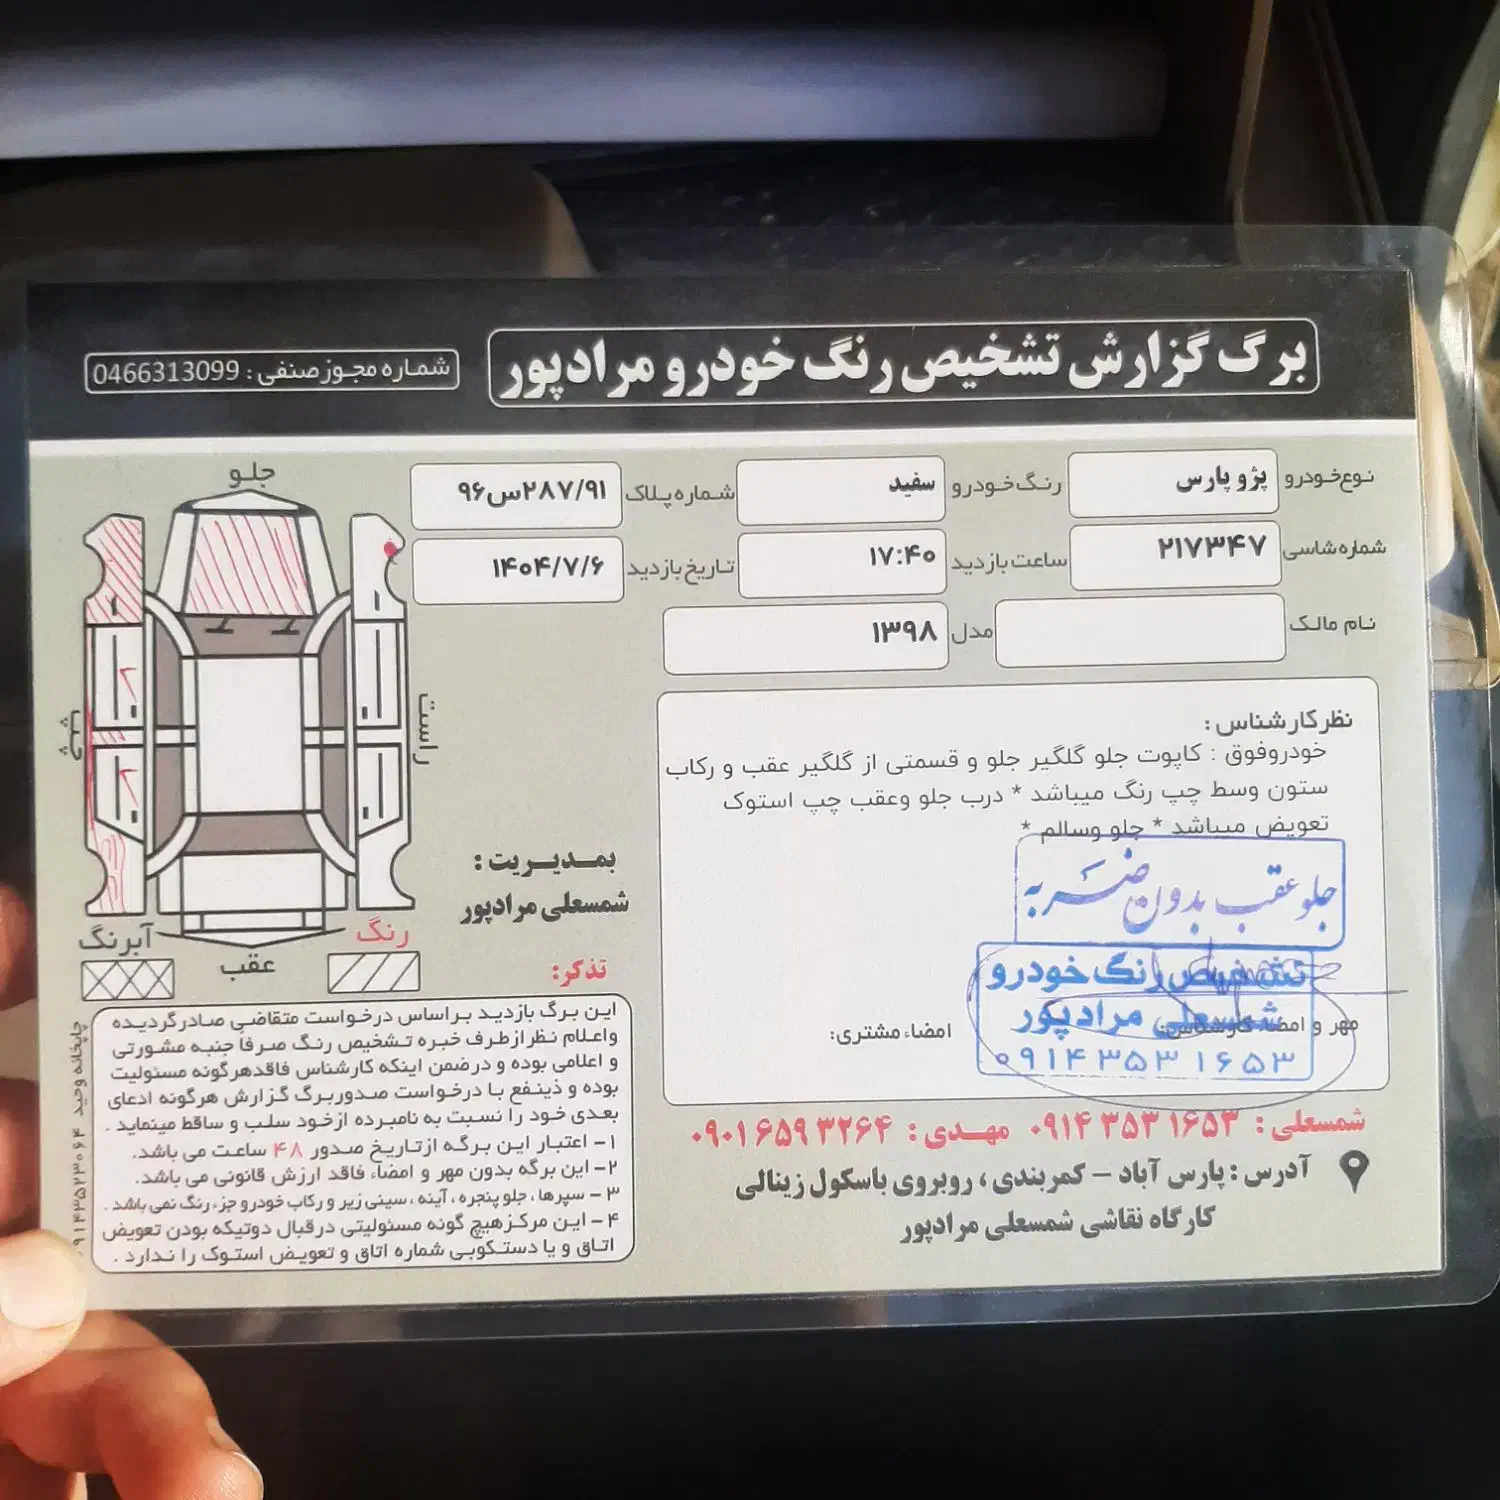 برگ گزارش تشخیص رنگ خودرو مرادپور
شماره مجوز صنفی : 0466313099
نوع خودرو پژو پارس رنگ خودرو سفید شماره پلاک ۹۶س۲۸۷/۹۱
شماره شاسی ۲۱۷۳۴۷ ساعت بازدید ۱۷:۴۰ تاریخ بازدید ۱۴۰۴/۷/۶
نام مالک مدل ۱۳۹۸
نظر کارشناس :
خودروفوق : کاپوت جلو گلگیر جلو و قسمتی از گلگیر عقب و رکاب
ستون وسط چپ رنگ میباشد * درب جلو وعقب چپ استوک
تعویض میباشد * جلو وسالم *
جلو عقب بدون ضربه
تشخیص رنگ خودرو
شمسعلی مرادپور
۰۹۱۴۳۵۳۱۶۵۳
مهر و امضاء کارشناس:
امضاء مشتری:
جلو
چپ
راست
عقب
آبرنگ
رنگ
بمدیریت :
شمسعلی مرادپور
تذکر:
این برگ بازدید براساس درخواست متقاضی صادرگردیده
واعلام نظر ازطرف خبره تشخیص رنگ صرفا جنبه مشورتی
و اعلامی بوده و درضمن اینکه کارشناس فاقدهرگونه مسئولیت
بوده و ذینفع با درخواست صدوربرگ گزارش هرگونه ادعای
بعدی خود را نسبت به نامبرده ازخود سلب و ساقط مینماید .
۱- اعتبار این برگه ازتاریخ صدور ۴۸ ساعت می باشد.
۲- این برگه بدون مهر و امضاء فاقد ارزش قانونی می باشد.
۳- سپرها ، جلو پنجره ، آینه ، سینی زیر و رکاب خودرو جزء رنگ نمی باشد .
۴- این مرکز هیچ گونه مسئولیتی درقبال دوتیکه بودن تعویض
اتاق و یا دستکوبی شماره اتاق و تعویض استوک را ندارد .
چاپخانه وحید ۰۹۱۴۳۵۲۳۰۶۴
شمسعلی : ۰۹۱۴ ۳۵۳ ۱۶۵۳ مهدی : ۰۹۰۱ ۶۵۹ ۳۲۶۴
آدرس : پارس آباد - کمربندی ، روبروی باسکول زینالی
کارگاه نقاشی شمسعلی مرادپور